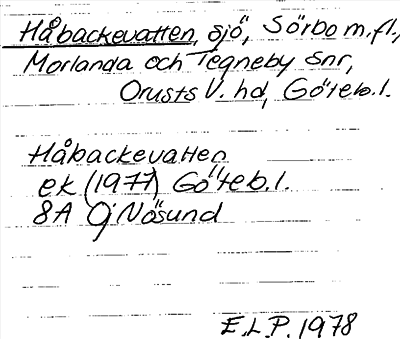 Håbackevatten, sjö, Sörbo m.fl.,
Morlanda och Tegneby snr,
Orusts V. hd, Göteb.l.
Håbackevatten
ek (1977) Göteb.l.
8A Nösund
E.L.P. 1978